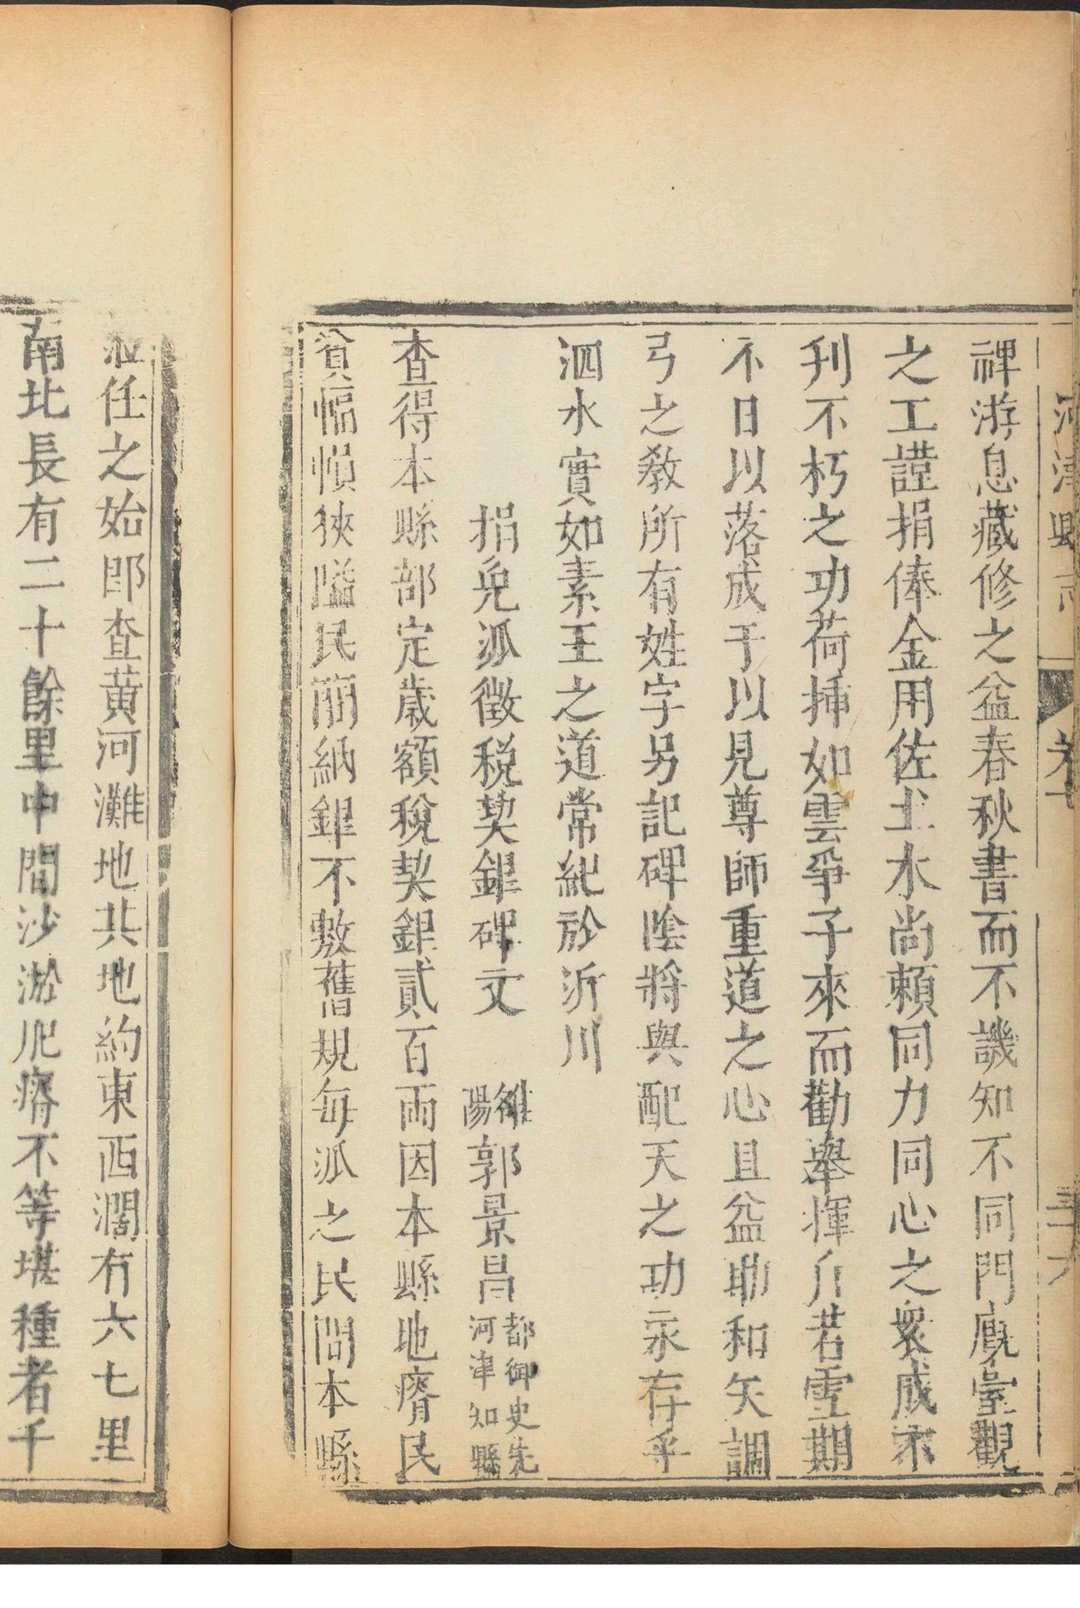 河津縣志
卷十
三十六
禆游息藏修之益春秋書而不譏知不同門廄臺觀
之工謹捐俸金用佐土木尚賴同力同心之衆咸永
刋不朽之功荷揷如雲爭子來而勸舉揮斤若雪期
不日以落成于以見尊師重道之心且益助和矢調
弓之教所有姓字另記碑陰將與配天之功永存乎
泗水實如素王之道常紀於沂川
捐免派徵稅契銀碑文 雒陽郭景昌 都御史先河津知縣
查得本縣部定歲額稅契銀貳百兩因本縣地瘠民
貧幅幀狹隘民間納銀不敷舊規每派之民間本縣
任之始即查黃河灘地共地約東西濶有六七里
南北長有二十餘里中間沙淤肥瘠不等堪種者千